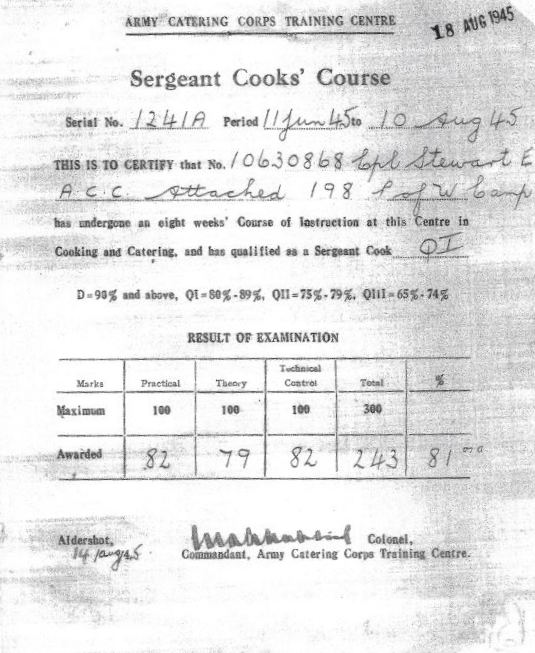 ARMY CATERING CORPS TRAINING CENTRE
18 AUG 1945
Sergeant Cooks' Course
Serial No. 1241A Period 11 Jun 45 to 10 Aug 45
THIS IS TO CERTIFY that No. 10630868 Cpl Stewart E
A.C.C. Attached 198 P of W Camp
has undergone an eight weeks' Course of Instruction at this Centre in
Cooking and Catering, and has qualified as a Sergeant Cook QI
D=90% and above, QI=80%-89%, QII=75%-79%, QIII=65%-74%
RESULT OF EXAMINATION
Marks Practical Theory Technical Control Total %
Maximum 100 100 100 300
Awarded 82 79 82 243 81
Aldershot, Colonel,
14 Aug 45. Commandant, Army Catering Corps Training Centre.